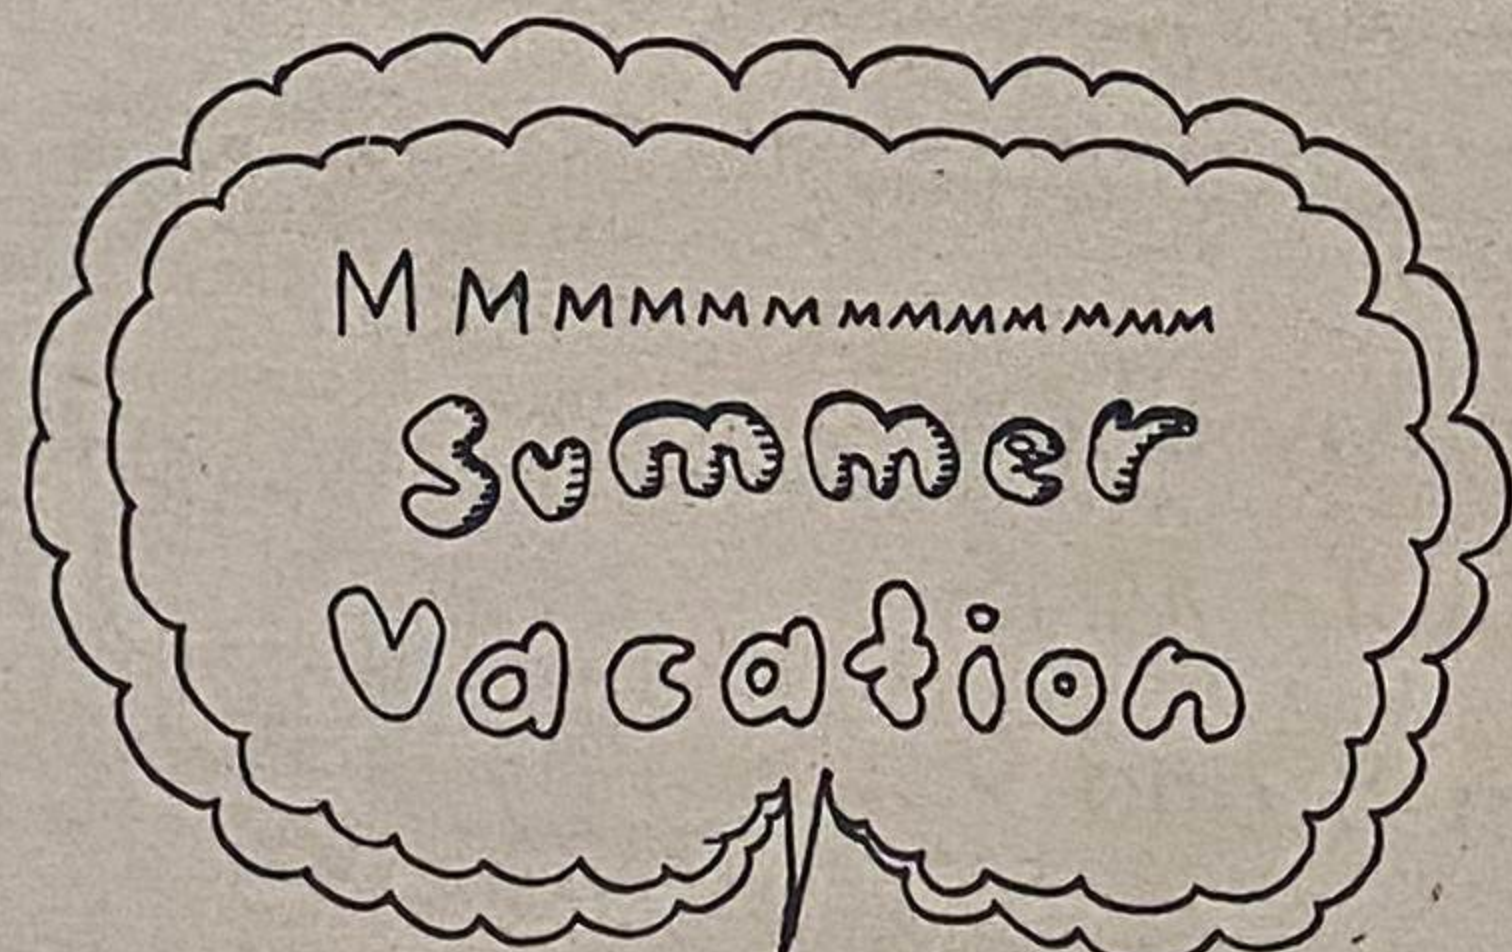 MMMMMMMMMMMMM
Summer
Vacation